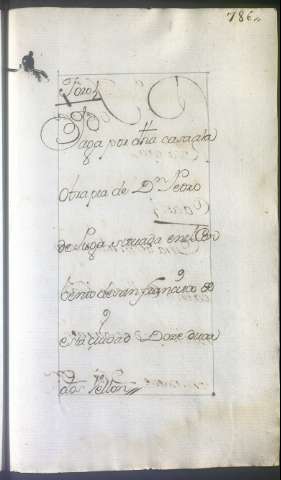 786,,
Toro
Paga por dha casa, la
Otra pia de Dn. Pedro
de Puga situada en el Con
bento de san francisco de
esta ciudad Doze duca
dos Vellon